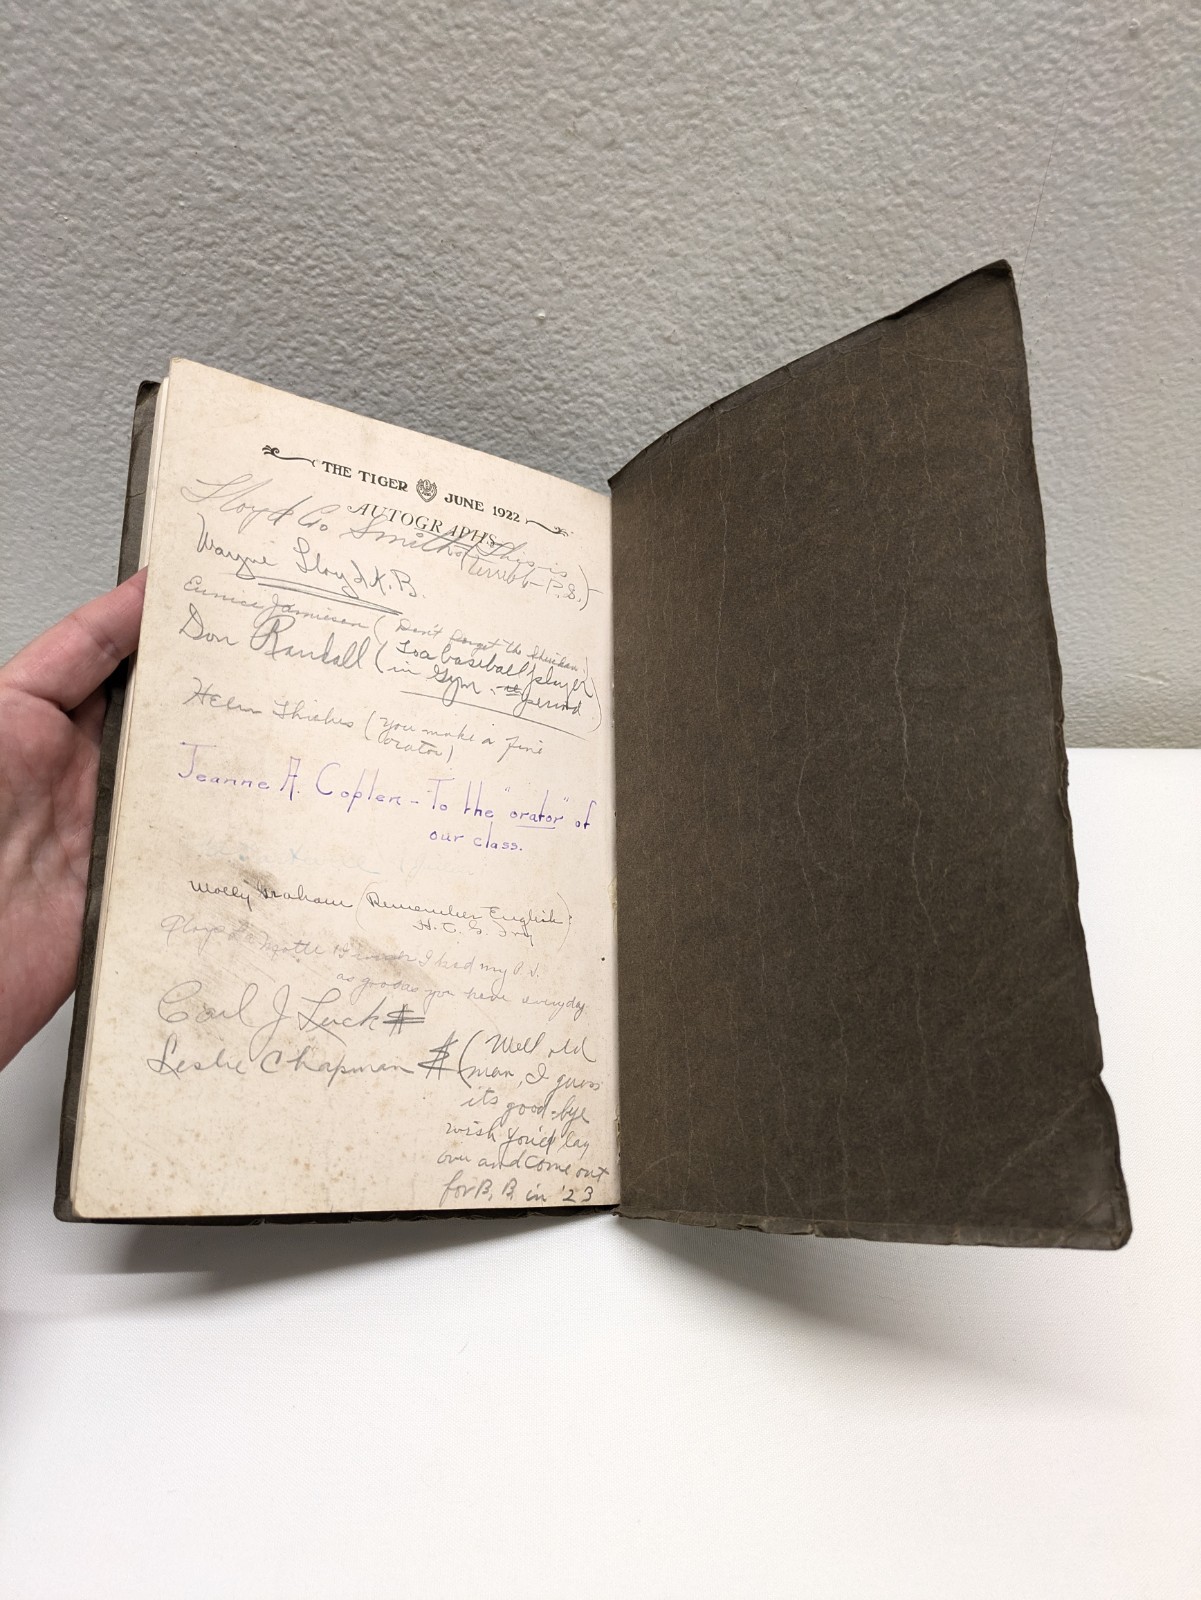 THE TIGER JUNE 1922
AUTOGRAPHS
Lloyd Smith (This is
P.S.)
Wayne Lloyd K.B.
Eunice Jamieson (Don't forget the
Don Randall (To a baseball player
in Gym. period)
Helen (You make a fine
orator)
Jeanne A. Copler - To the "orator" of
our class.
Molly Graham (Remember English
H.C.S.
I had my P.S.
as good as you have everyday
Carl J Luck $
Leslie Chapman $ (Well old
man, I guess
its good-bye
wish you'd lay
over and come out
for B. B. in '23